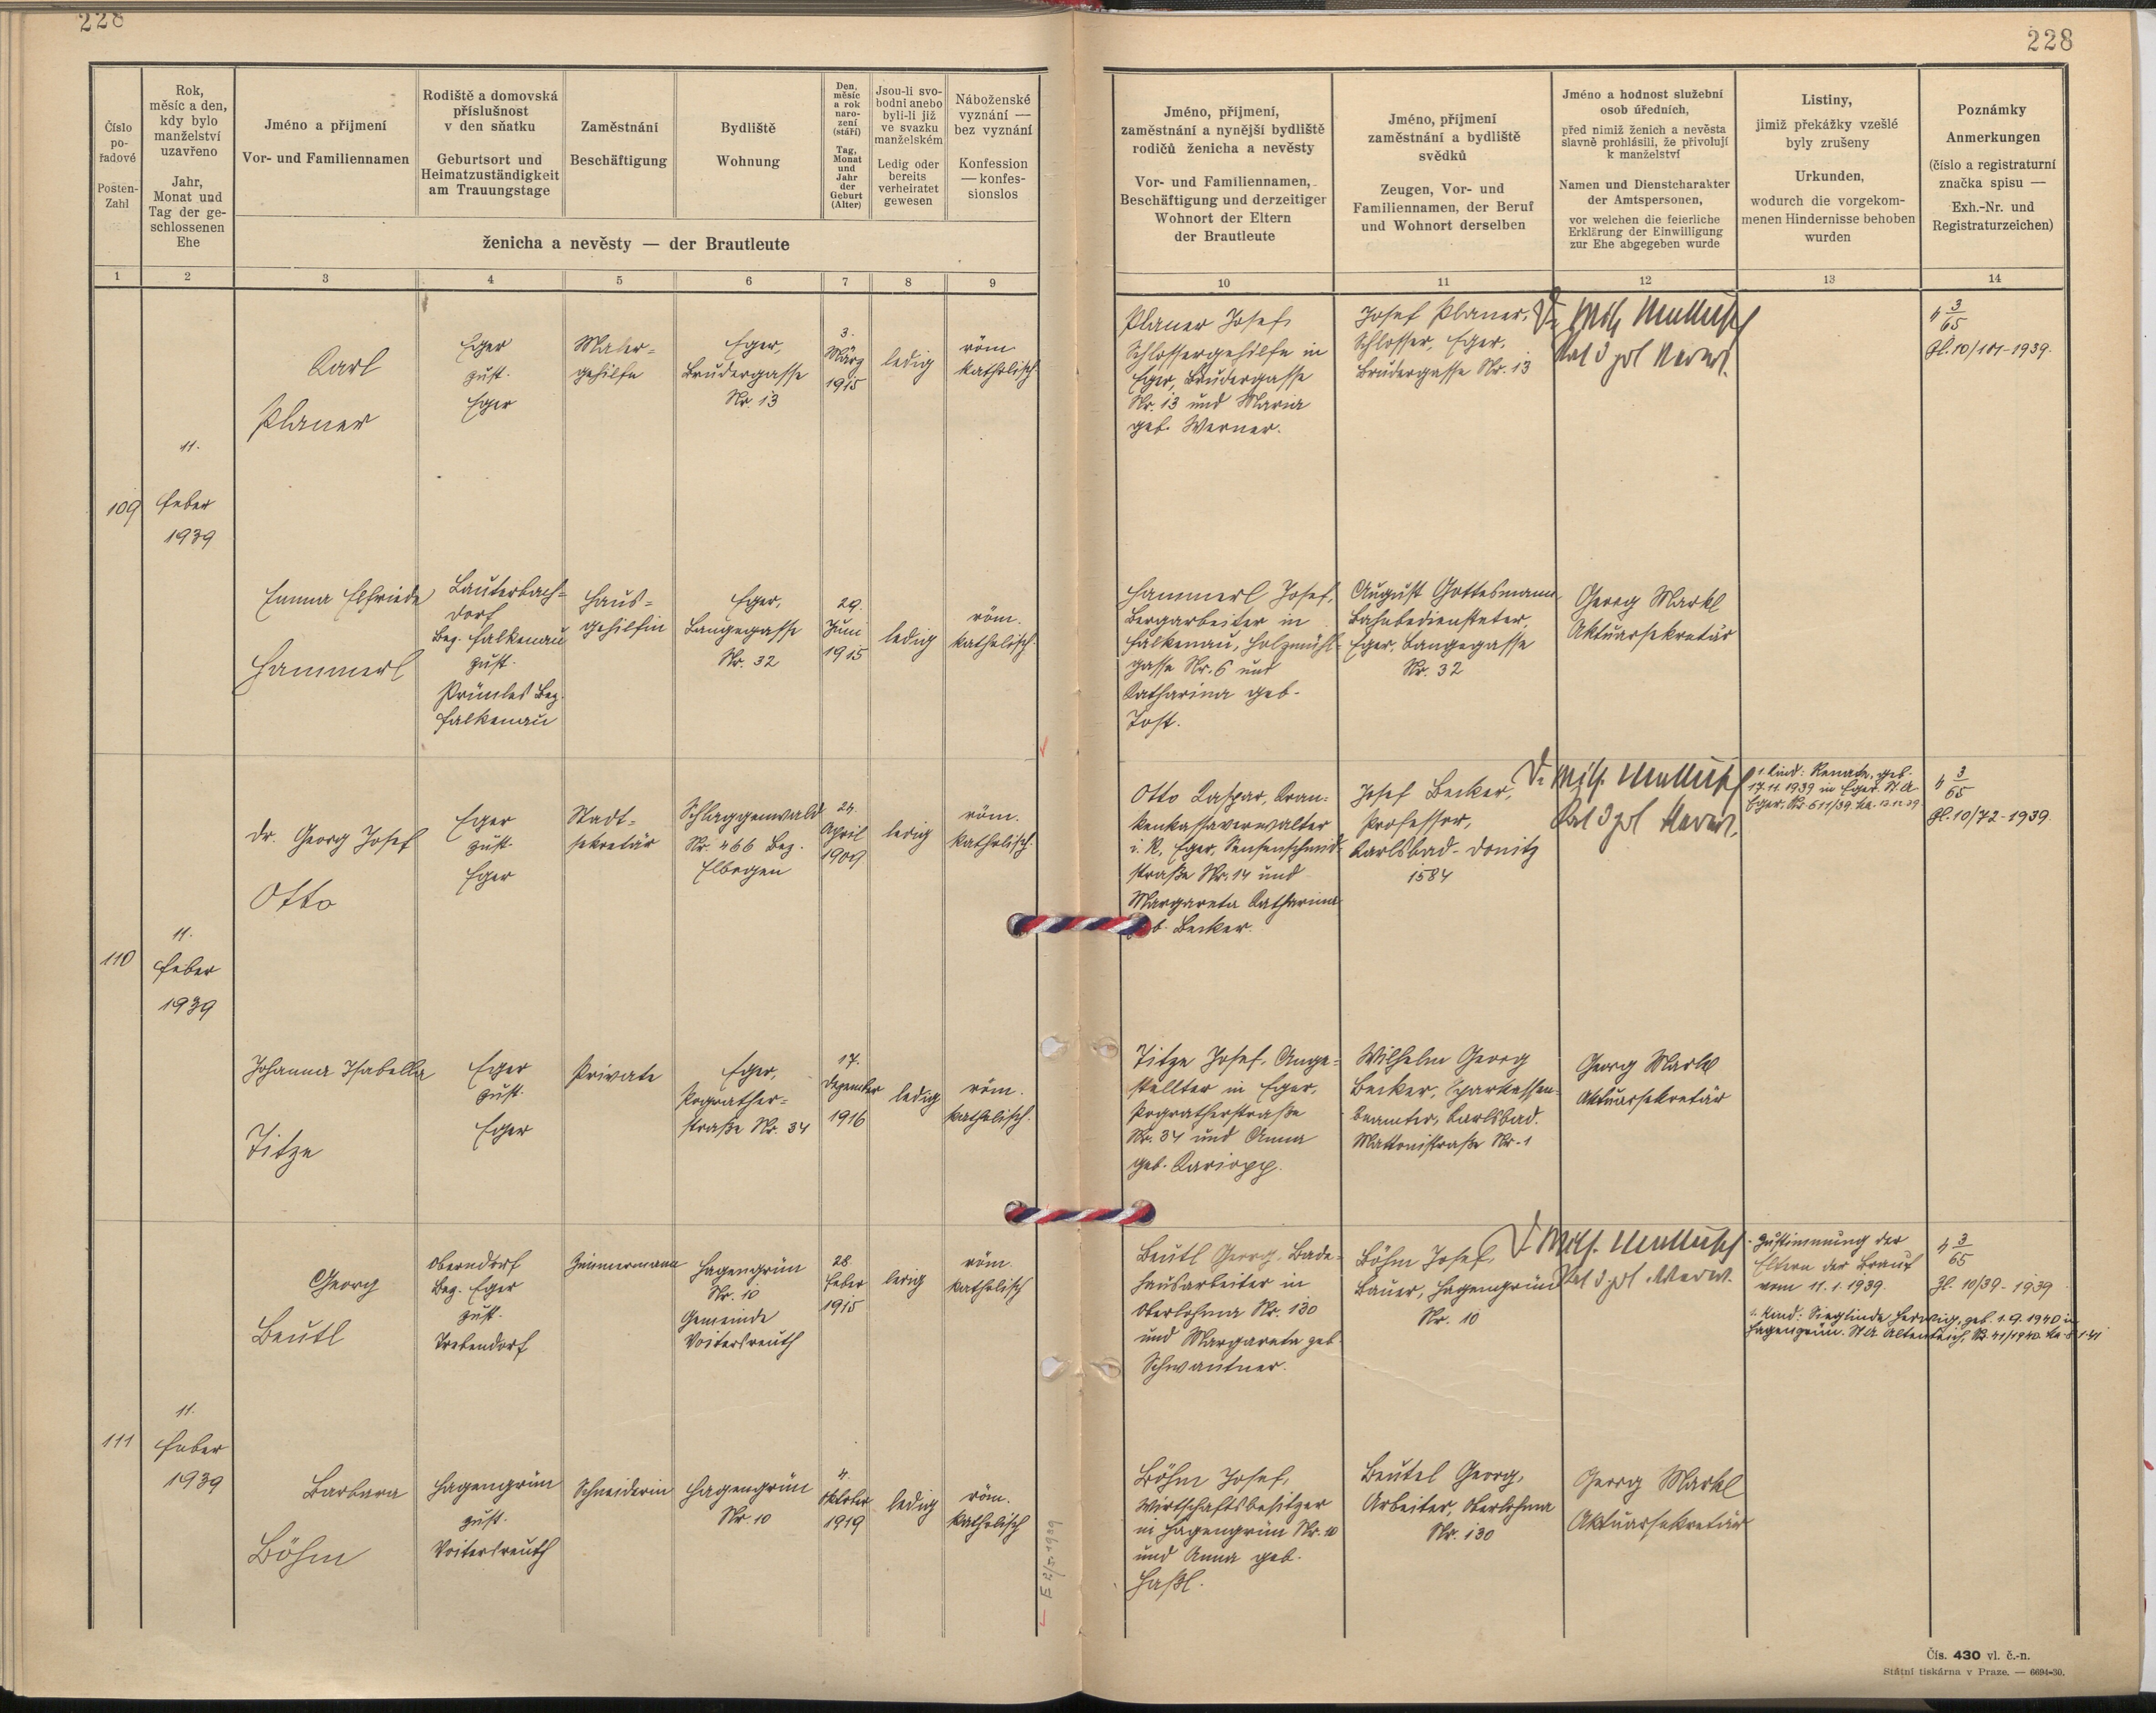 228
228
Číslo
po-
řadové
Posten-
Zahl
Rok,
měsíc a den,
kdy bylo
manželství
uzavřeno
Jahr,
Monat und
Tag der ge-
schlossenen
Ehe
Jméno a příjmení
Vor- und Familiennamen
Rodiště a domovská
příslušnost
v den sňatku
Geburtsort und
Heimatzuständigkeit
am Trauungstage
Zaměstnání
Beschäftigung
Bydliště
Wohnung
Den,
měsíc
a rok
naro-
zení
(stáří)
Tag,
Monat
und
Jahr
der
Geburt
(Alter)
Jsou-li svo-
bodni anebo
byli-li již
ve svazku
manželském
Ledig oder
bereits
verheiratet
gewesen
Náboženské
vyznání —
bez vyznání
Konfession
— konfes-
sionslos
ženicha a nevěsty — der Brautleute
Jméno, příjmení,
zaměstnání a nynější bydliště
rodičů ženicha a nevěsty
Vor- und Familiennamen,
Beschäftigung und derzeitiger
Wohnort der Eltern
der Brautleute
Jméno, příjmení
zaměstnání a bydliště
svědků
Zeugen, Vor- und
Familiennamen, der Beruf
und Wohnort derselben
Jméno a hodnost služební
osob úředních,
před nimiž ženich a nevěsta
slavně prohlásili, že přivolují
k manželství
Namen und Dienstcharakter
der Amtspersonen,
vor welchen die feierliche
Erklärung der Einwilligung
zur Ehe abgegeben wurde
Listiny,
jimiž překážky vzešlé
byly zrušeny
Urkunden,
wodurch die vorgekom-
menen Hindernisse behoben
wurden
Poznámky
Anmerkungen
(číslo a registraturní
značka spisu —
Exh.-Nr. und
Registraturzeichen)
1 2 3 4 5 6 7 8 9 10 11 12 13 14
109
11.
Feber
1939
Karl
Planer
Eger
zust.
Eger
Maler-
gehilfe
Eger,
Brudergasse
Nr. 13
3.
März
1915
ledig
röm.
katholisch
Planer Josef,
Schlossergehilfe in
Eger, Brudergasse
Nr. 13 und Maria
geb. Werner.
Josef Planer,
Schlosser, Eger,
Brudergasse Nr. 13
4 3/65
Zl. 10/101-1939.
Emma Elfriede
Hammerl
Lauterbach-
dorf
Bez. Falkenau
zust.
Prümles Bez.
Falkenau
Haus-
gehilfin
Eger,
Langegasse
Nr. 32
29.
Juni
1915
ledig
röm.
katholisch.
Hammerl Josef,
Bergarbeiter in
Falkenau, Holzmühl-
gasse Nr. 6 und
Katharina geb.
Tost.
August Gottesmann,
Bahnbediensteter,
Eger, Langegasse
Nr. 32
Georg Markl
Aktuarsekretär
110
11.
Feber
1939
Dr. Georg Josef
Otto
Eger
zust.
Eger
Stadt-
sekretär
Schlaggenwald
Nr. 466 Bez.
Elbogen
24.
April
1909
ledig
röm.
katholisch.
Otto Kaspar, Kran-
kenkassaverwalter
i. R., Eger, Sensenschmid-
straße Nr. 14 und
Margareta Katharina
geb. Becker.
Josef Becker,
Professor,
Karlsbad-Donitz
1584
1. Kind: Renate, geb.
17.11.1939 in Eger. St. A.
Eger, Nr. 611/39
4 3/65
Zl. 10/72-1939.
Johanna Isabella
Titze
Eger
zust.
Eger
Private
Eger,
Pograther-
straße Nr. 34
17.
Dezember
1916
ledig
röm.
katholisch.
Titze Josef, Ange-
stellter in Eger,
Pogratherstraße
Nr. 34 und Anna
geb. Kariopp.
Wilhelm Georg
Becker, Sparkassen-
beamter, Karlsbad.
Mattonistraße Nr. 1
Georg Markl
Aktuarsekretär
111
11.
Feber
1939
Georg
Beutl
Oberndorf
Bez. Eger
zust.
Trebendorf
Zimmermann
Hagengrün
Nr. 10
Gemeinde
Voitersreuth
28.
Feber
1915
ledig
röm.
katholisch
Beutl Georg, Bade-
hausarbeiter in
Oberlohma Nr. 130
und Margareta geb.
Schwantner.
Böhm Josef,
Bauer, Hagengrün
Nr. 10
Zustimmung der
Eltern der Braut
vom 11.1.1939.
1. Kind: Sieglinde Herwig, geb. 1.9.1940 in
Hagengrün. St. A. Altenteich, Nr. 41/1940
4 3/65
Zl. 10/39-1939
Barbara
Böhm
Hagengrün
zust.
Voitersreuth
Schneiderin
Hagengrün
Nr. 10
4.
Oktober
1919
ledig
röm.
katholisch
Böhm Josef,
Wirtschaftsbesitzer
in Hagengrün Nr. 10
und Anna geb.
Haßl.
Beutel Georg,
Arbeiter, Oberlohma
Nr. 130
Georg Markl
Aktuarsekretär
Čís. 430 vl. č.-n.
Státní tiskárna v Praze. — 6694-30.